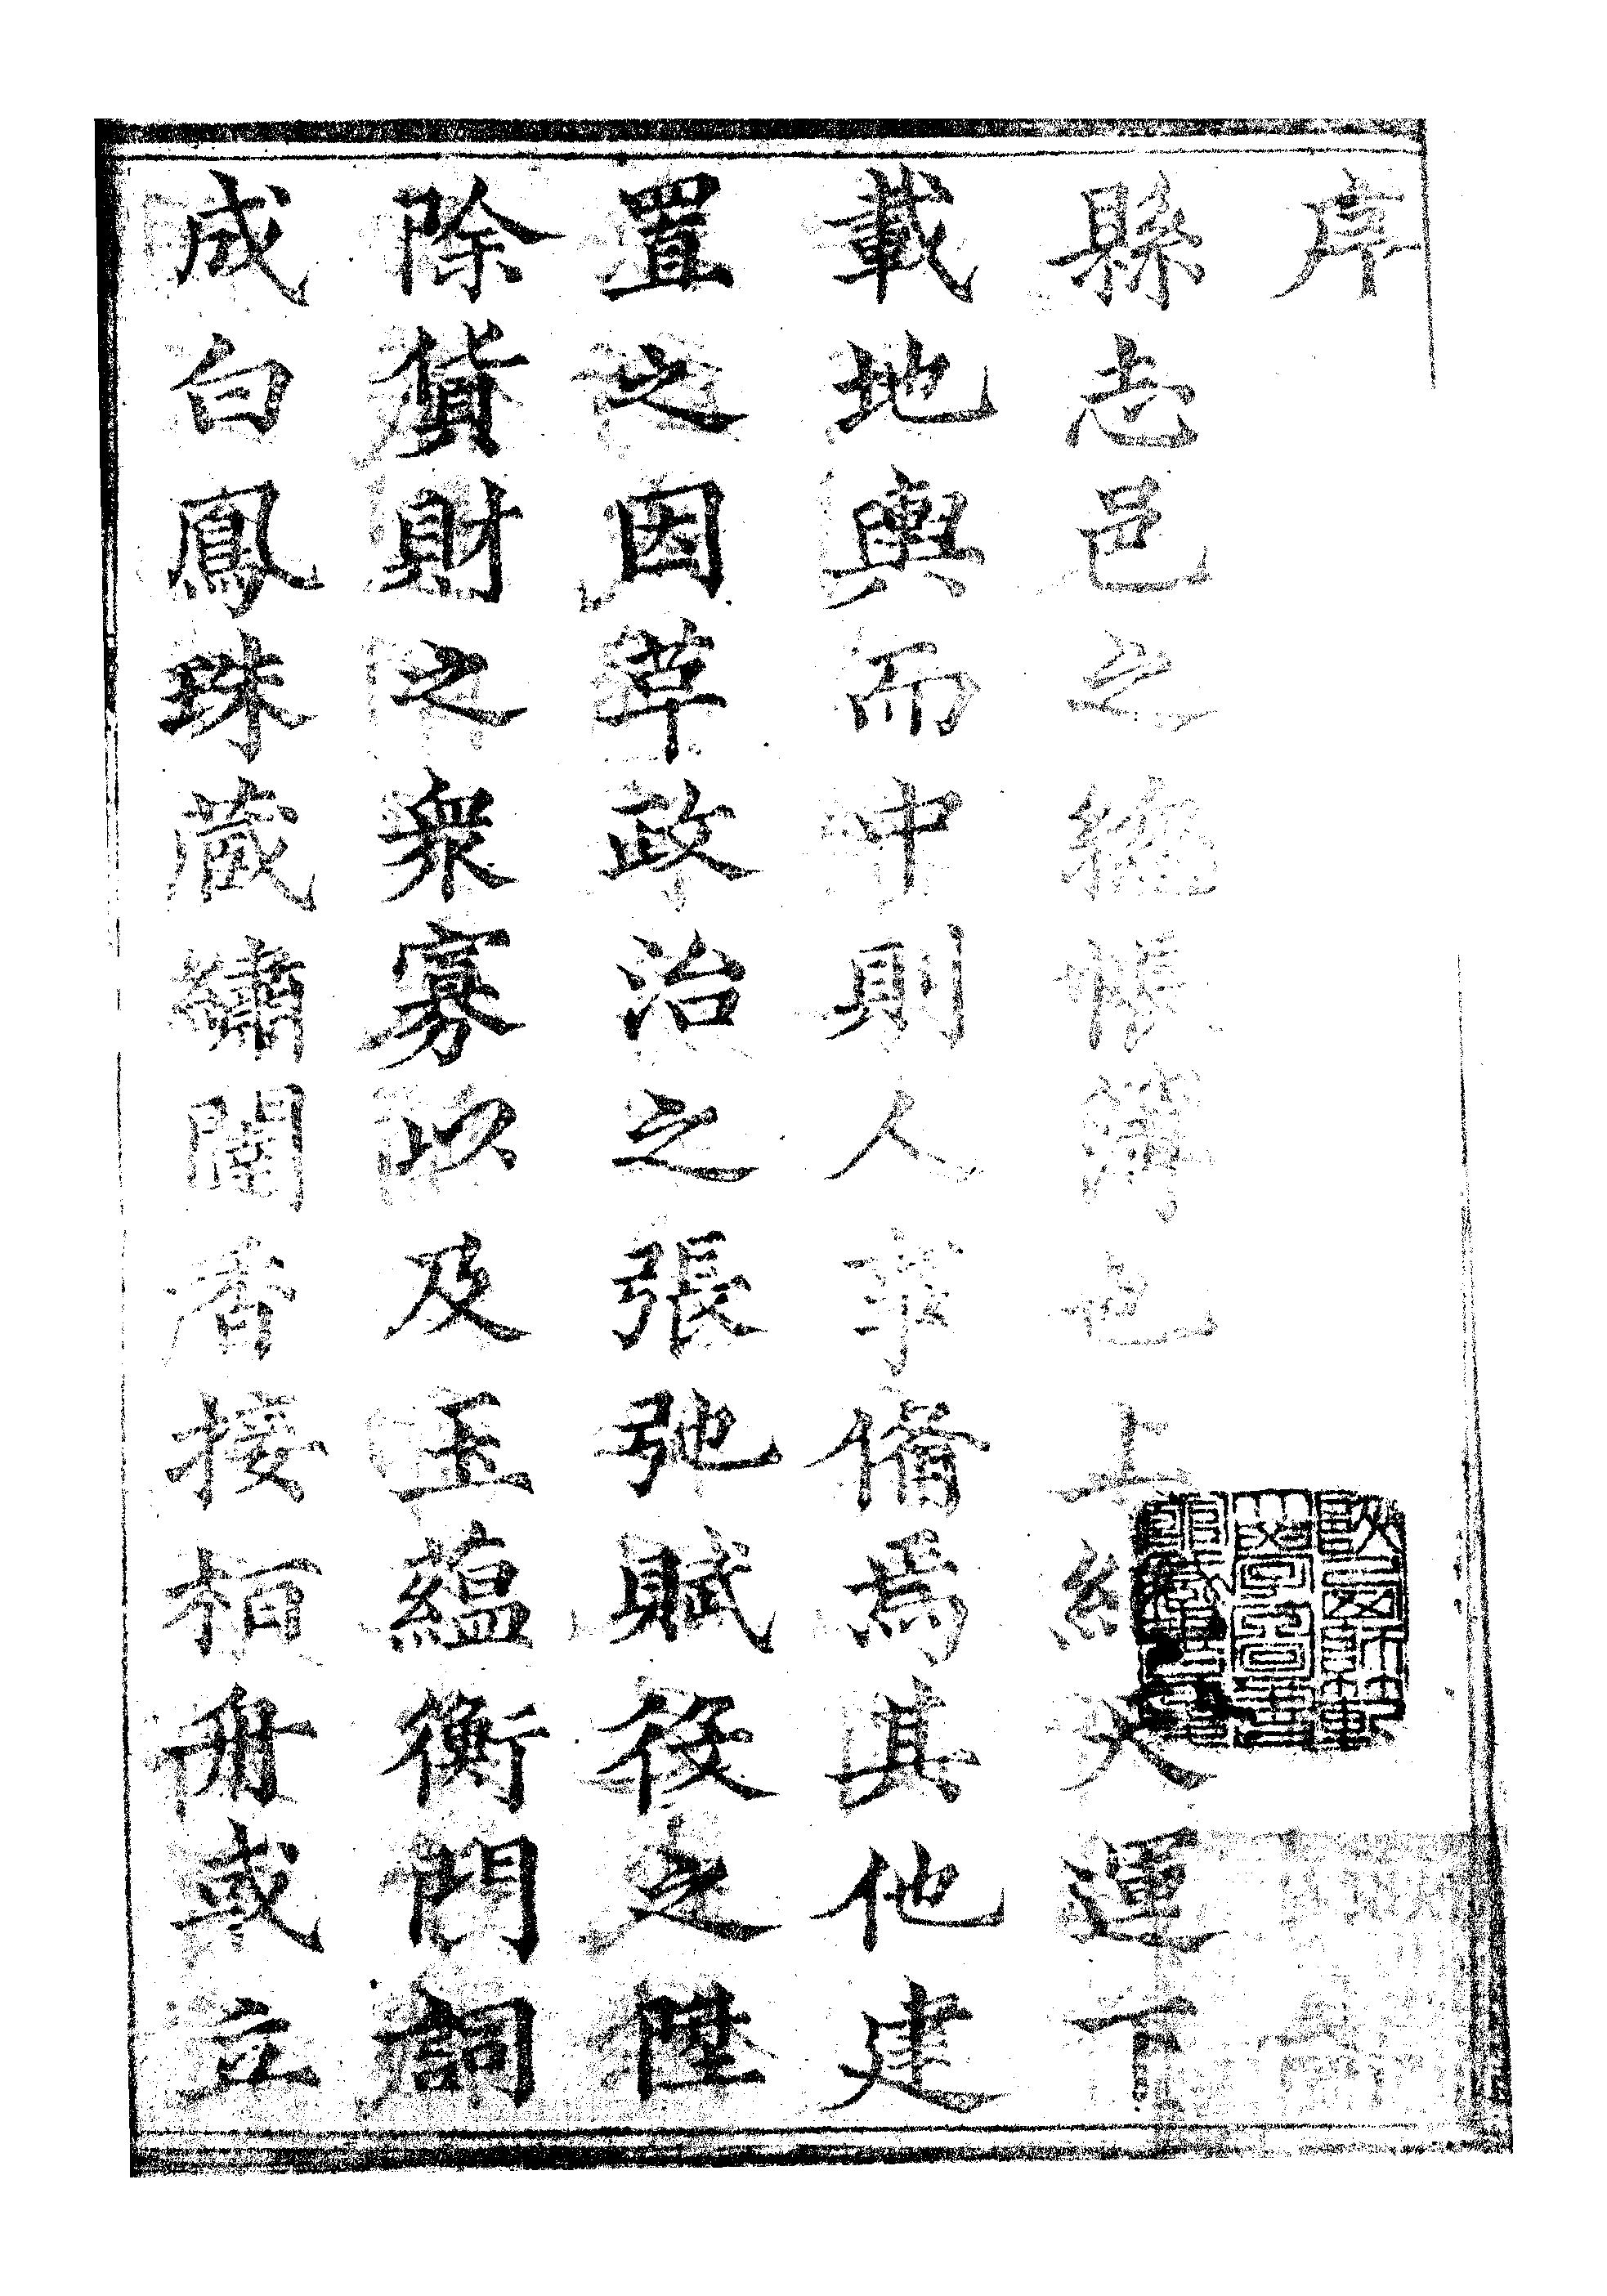 序
縣志邑之總帳簿也上經天運下
載地輿而中則人事備焉其他建
置之因革政治之張弛賦役之陞
除貨財之衆寡以及玉蘊衡門詞
成白鳳珠藏繡闥香接栢舟或立